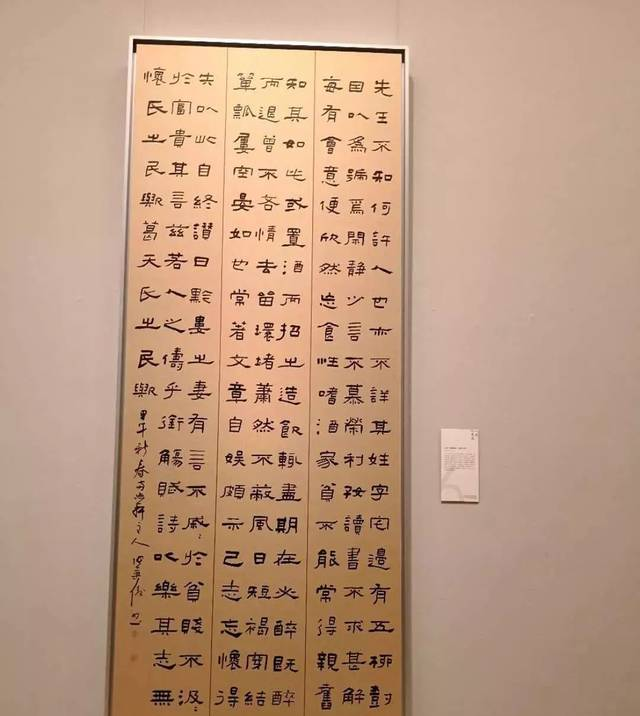 先生不知何許人也亦不詳其姓字宅邊有五柳樹
因以爲號焉閑静少言不慕榮利好讀書不求甚解
每有會意便欣然忘食性嗜酒家貧不能常得親舊
知其如此或置酒而招之造飲輒盡期在必醉既醉
而退曾不吝情去留環堵蕭然不蔽風日短褐穿結
簞瓢屢空晏如也常著文章自娱頗示己志忘懷得
失以此自終讚曰黔婁之妻有言不戚〻於貧賤不汲〻
於富貴其言兹若人之儔乎銜觴賦詩以樂其志無
懷氏之民歟葛天氏之民歟
甲午新春主人